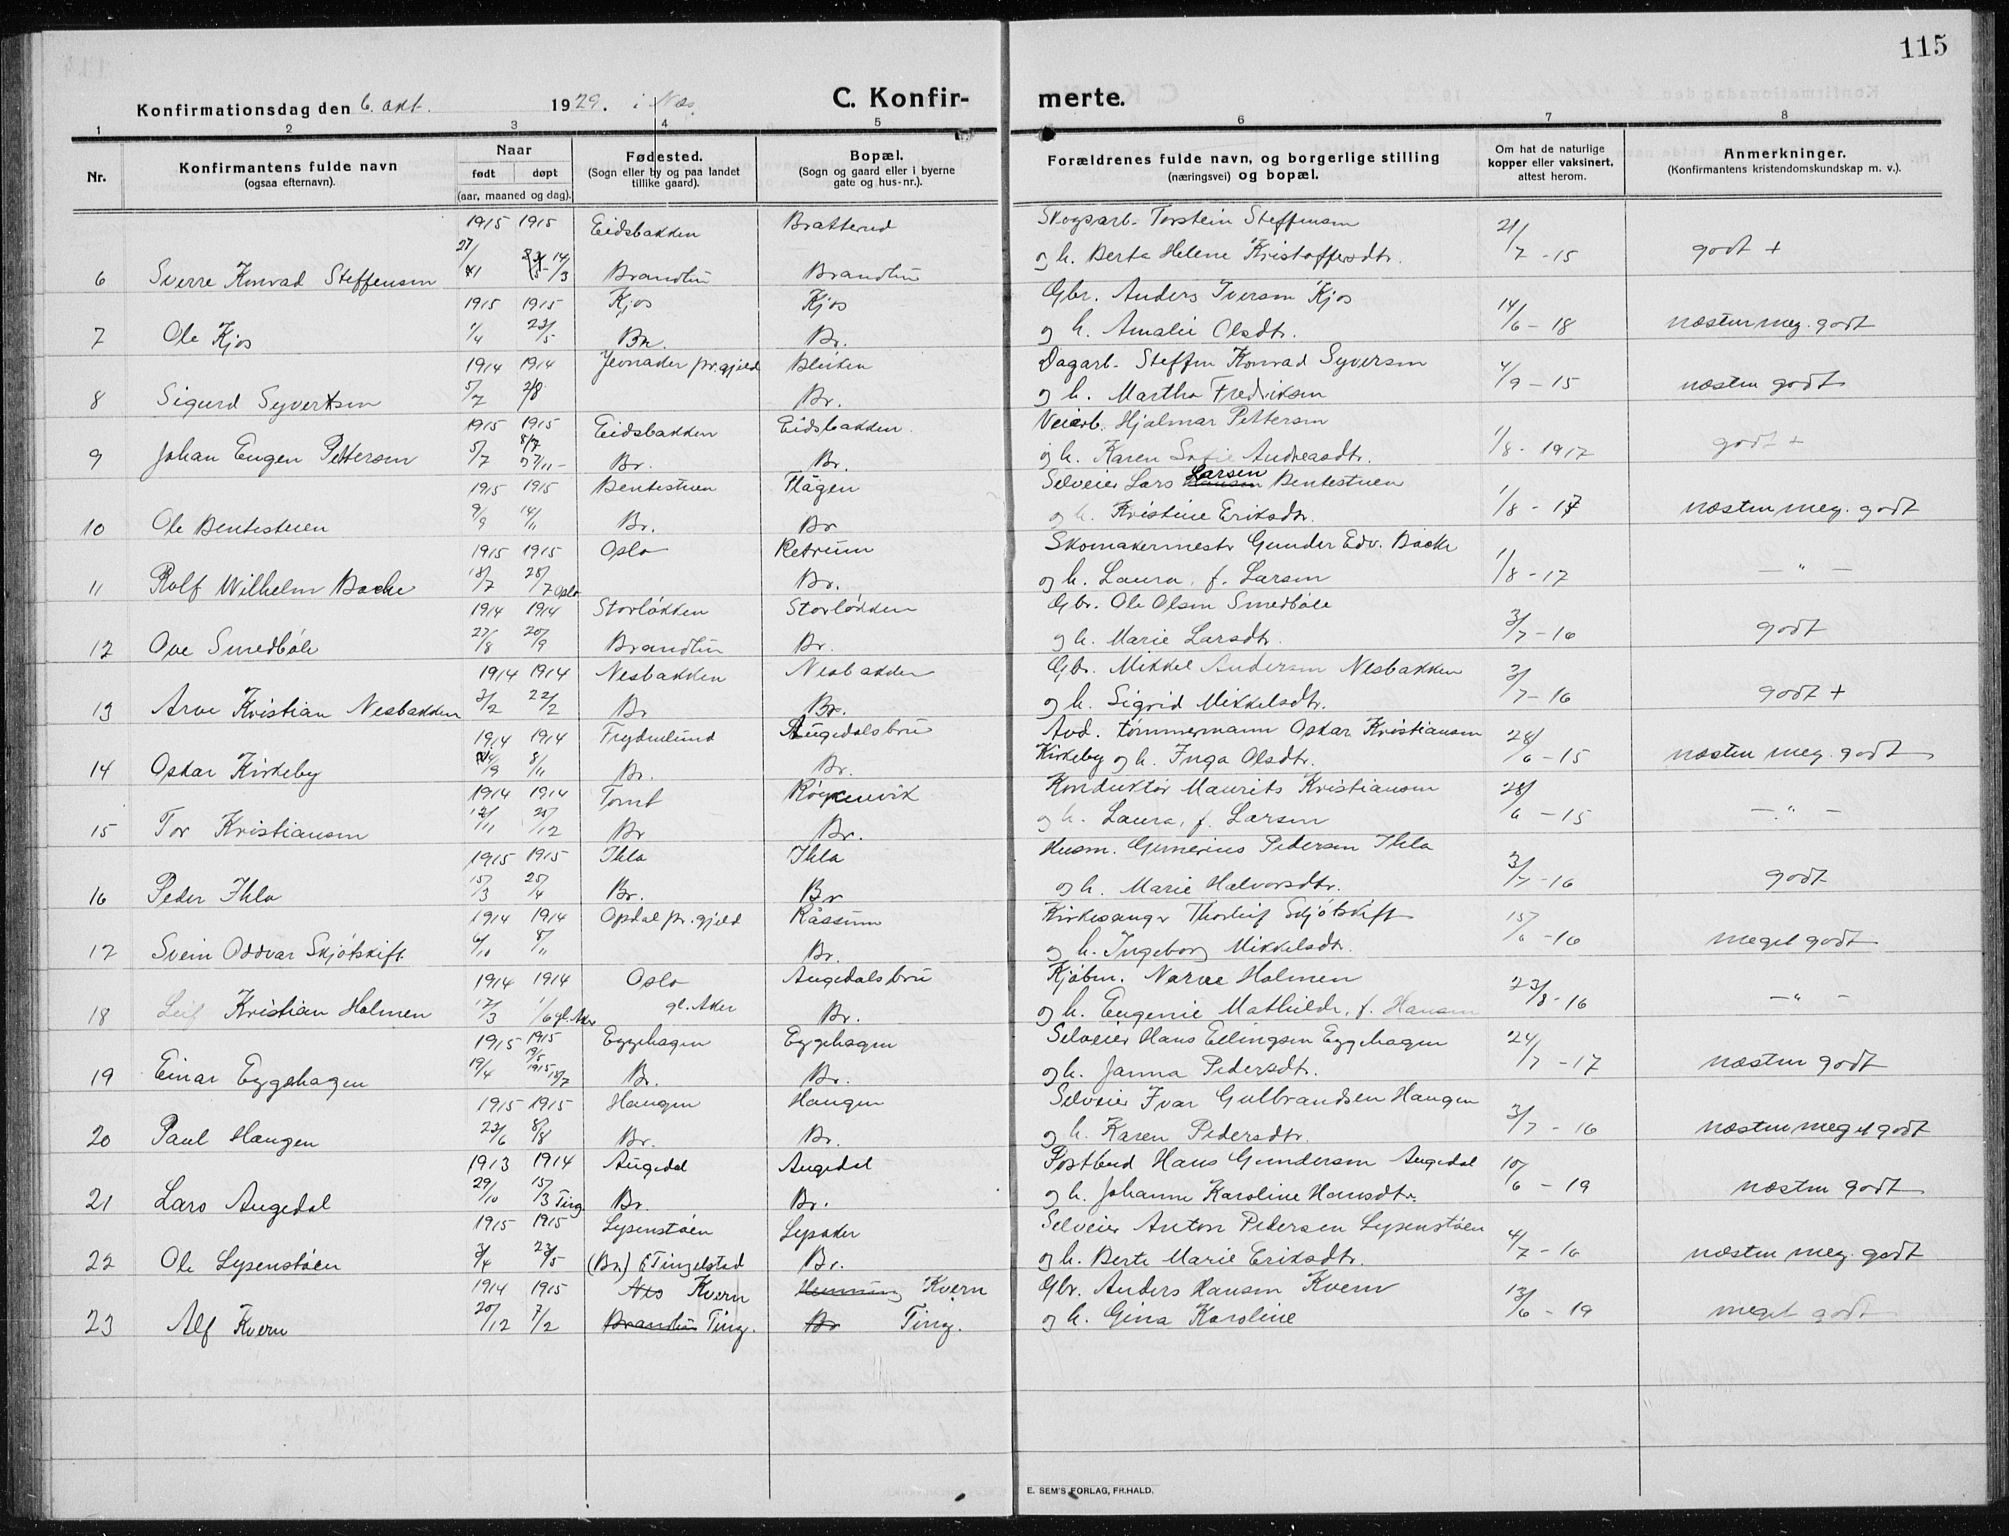 115
Konfirmationsdag den 6. okt. 1929. i Nes. C. Konfir- merte.
1 2 3 4 5 6 7 8
Nr. Konfirmantens fulde navn (ogsaa efternavn). Naar født døpt (aar, maaned og dag). Fødested. (Sogn eller by og paa landet tillike gaard). Bopæl. (Sogn og gaard eller i byerne gate og hus-nr.). Forældrenes fulde navn, og borgerlige stilling (næringsvei) og bopæl. Om hat de naturlige kopper eller vaksinert, attest herom. Anmerkninger. (Konfirmantens kristendomskundskap m. v.).
1915 1915 Eidsbakken Bratterud Skogsarb. Torstein Steffensen 21/7 - 15 godt +
6 Sverre Konrad Steffensen 27/1 14/3 Brandbu Brandbu og h. Berta Helene Kristoffersdtr.
1915 1915 Kjos Kjos Gbr. Anders Iversen Kjos 14/6 - 18 næsten meg. godt
7 Ole Kjos 1/4 23/5 Br. Br. og h. Amalie Olsdtr.
1914 1914 Jevnaker pr.gjeld Bleiken Dagarb. Steffen Konrad Syversen 4/9 - 15 næsten godt
8 Sigurd Syversen 5/7 2/8 Br. og h. Martha Fredriksen
1915 1915 Eidsbakken Eidsbakken Veiarb. Hjalmar Pettersen 1/8 - 1917 godt +
9 Johan Eugen Pettersen 5/7 Br. Br. og h. Karen Sofie Andreasdtr.
1915 1915 Bentestuen Hågen Selveier Lars Larsen Bentestuen 1/8 - 17 næsten meg. godt
10 Ole Bentestuen 9/9 14/11 Br. Br og h. Kristine Eriksdtr.
1915 1915 Oslo Retrum Skomakermestr Gunder Edv. Backe 1/8 - 17 — " —
11 Rolf Wilhelm Backe 13/7 25/7 Oslo Br. og h. Laura, f. Larsen
1914 1914 Storløkken Storløkken Gbr. Ole Olsen Smedbøle 3/7 - 16 godt
12 Ove Smedbøle 27/8 20/9 Brandbu Br. og h. Marie Larsdtr.
1914 1914 Nesbakken Nesbakken Gbr. Mikkel Andersen Nesbakken 3/7 - 16 godt +
13 Arve Kristian Nesbakken 3/2 22/2 Br Br. og h. Sigrid Mikkelsdtr.
1914 1914 Frydenlund Augedalsbru Avd. tømmermann Oskar Kristiansen 28/6 - 15 næsten meg. godt
14 Oskar Kirkeby 8/11 Br. Br. Kirkeby og h. Inga Olsdtr.
1914 1914 Tomt Røykenvik Konduktør Maurits Kristiansen 28/6 - 15 — " —
15 Tor Kristiansen 12/11 25/12 Br Br. og h. Laura, f. Larsen
1915 1915 Ihla Ihla Husm. Gunerius Pedersen Ihla 3/7 - 16 godt
16 Peder Ihla 15/3 25/4 Br. Br og h. Marie Halvorsdtr.
1914 1914 Opdal pr. gjeld Råssum Kirkesanger Thorleif Skjøtskift 15/6 - 16 meget godt
17 Svein Oddvar Skjøtskift 6/10 8/11 Br. og h. Ingeborg Mikkelsdtr.
1914 1914 Oslo Augedalsbru Kjøbm. Narve Holmen 23/8 - 16 — " —
18 Leif Kristian Holmen 12/3 1/6 gl. Aker gl. Aker Br. og h. Eugenie Mathilde, f. Hansen
1915 1915 Eggehagen Eggehagen Selveier Hans Ellingsen Eggehagen 24/7 - 17 næsten godt
19 Einar Eggehagen 19/4 1915 18/7 Br. Br. og h. Janna Pedersdtr.
1915 1915 Haugen Haugen Selveier Ivar Gulbrandsen Haugen 3/7 - 16 næsten meget godt
20 Paul Haugen 23/6 8/8 Br. Br. og h. Karen Pedersdtr.
1913 1914 Augedal Augedal Postbud Hans Gundersen Augedal 10/6 - 19 næsten godt
21 Lars Augedal 29/10 15/3 Ting. Br. Br. og h. Johanne Karoline Hansdtr.
1915 1915 Lysenstøen Lysaker Selveier Anton Pedersen Lysenstøen 4/7 - 16 næsten meg. godt
22 Ole Lysenstøen 3/4 23/5 (Br) Tingelstad Br. og h. Berte Marie Eriksdtr.
1914 1915 Nes Kvern Henning Kvern Gbr. Anders Hansen Kvern 13/6 - 19 meget godt
23 Alf Kvern 20/12 7/2 Brandbu Ting. Br Ting. og h. Gina Karoline
E. SEM'S FORLAG, FR.HALD.